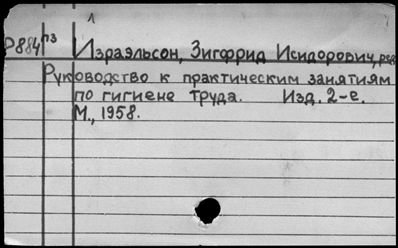 1
Р884 пз
Израэльсон, Зигфрид Исидорович, ред.
Руководство к практическим занятиям
по гигиене труда. Изд. 2-е.
М., 1958.